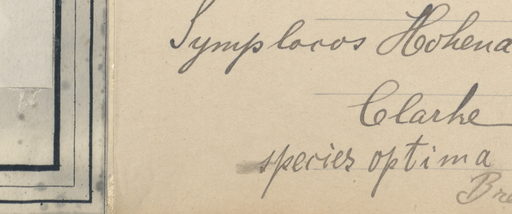 Symplocos Hohena
Clarke
species optima
Bre